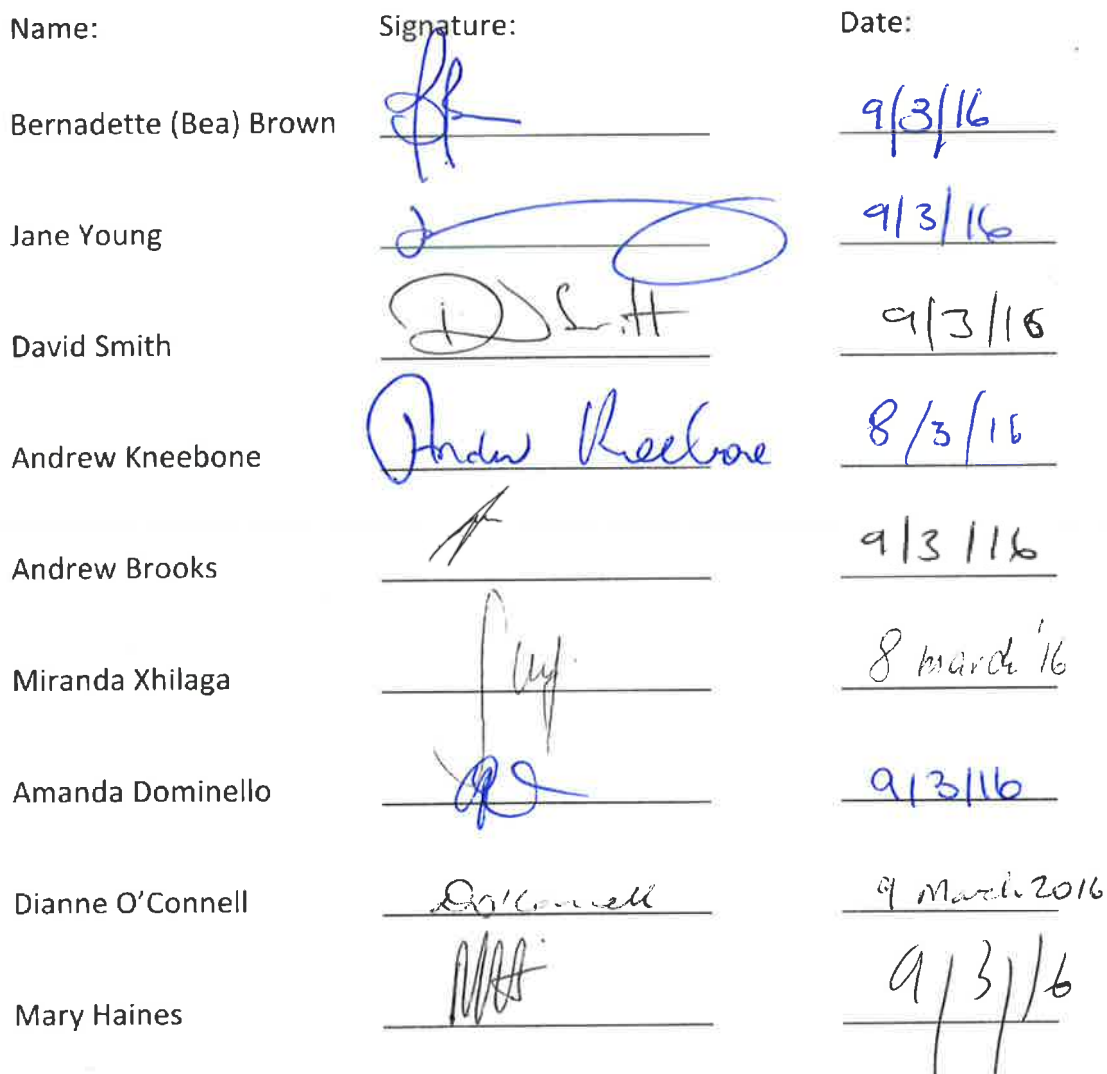 Name: Signature: Date:
Bernadette (Bea) Brown 9/3/16
Jane Young 9/3/16
David Smith D Smith 9/3/16
Andrew Kneebone Andrew Kneebone 8/3/16
Andrew Brooks 9/3/16
Miranda Xhilaga 8 march '16
Amanda Dominello 9/3/16
Dianne O'Connell DO'Connell 9 March 2016
Mary Haines 9/3/16